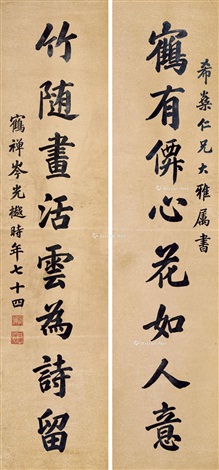 希桑仁兄大雅属書
寉有僊心花如人意
竹随畫活雲為詩留
寉禅岑光樾時年七十四